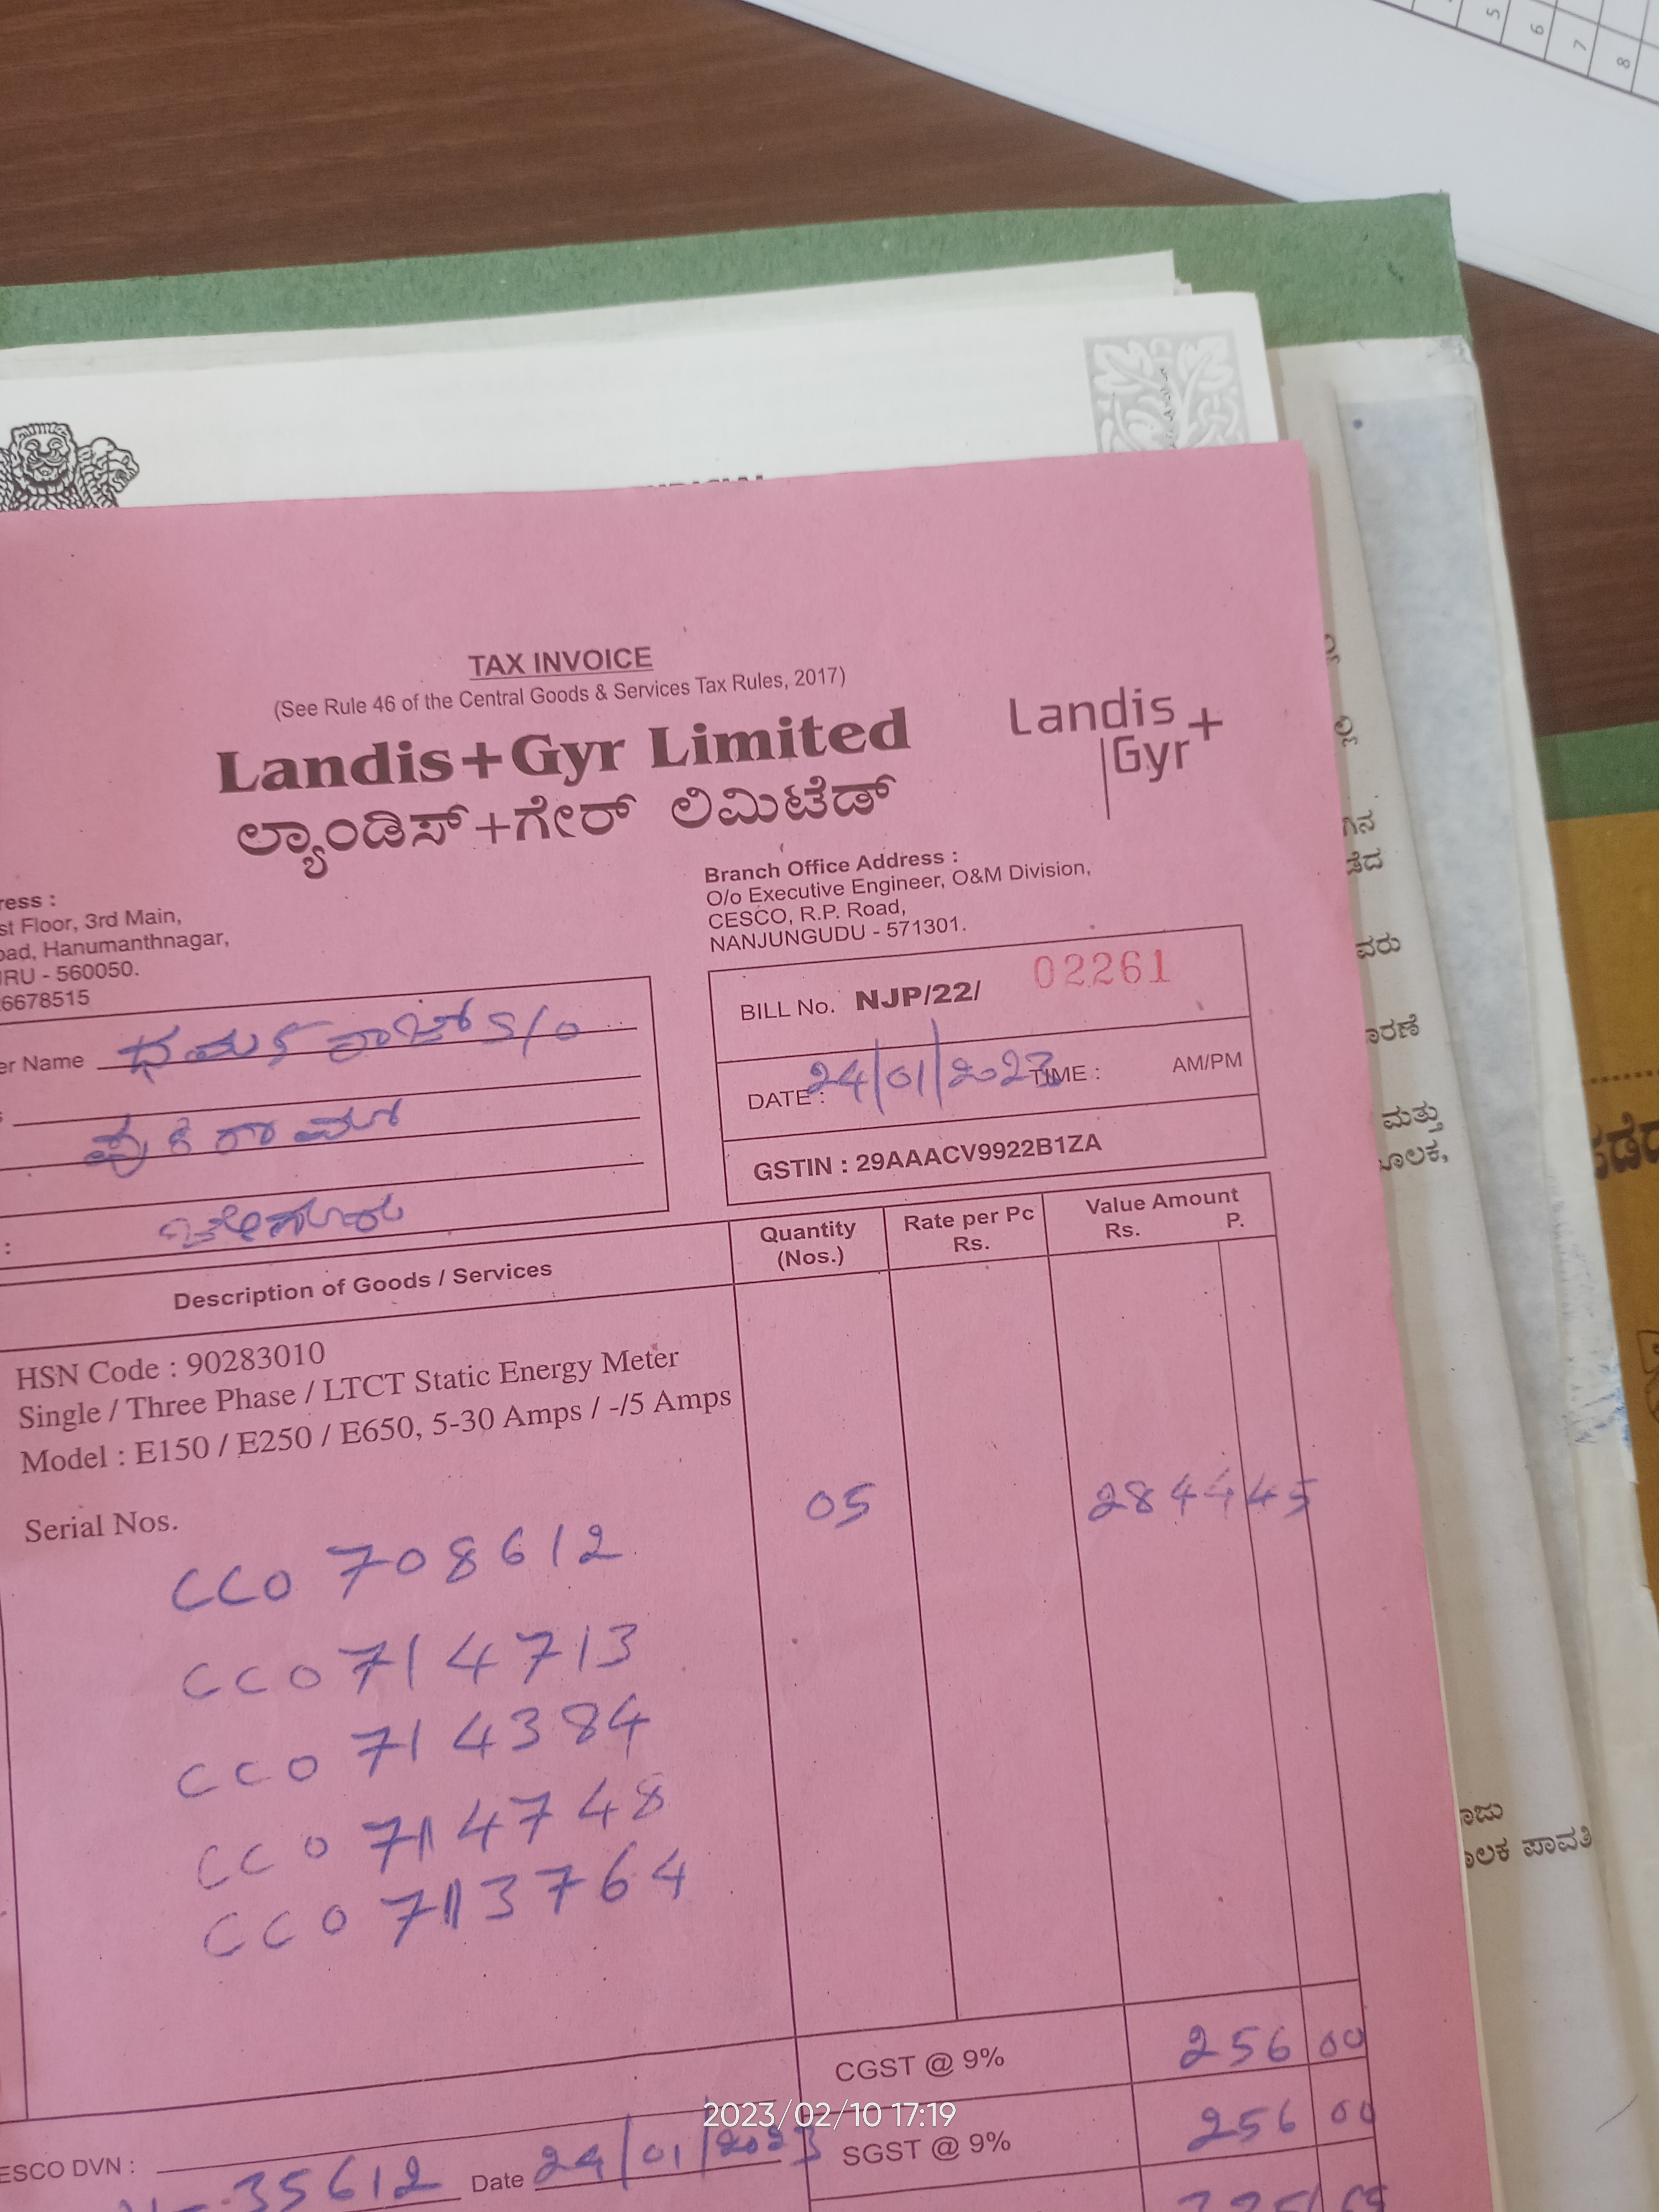 5
6
7
8
TAX INVOICE
(See Rule 46 of the Central Goods & Services Tax Rules, 2017)
Landis+Gyr Limited
Landis+
Gyr
ಲ್ಯಾಂಡಿಸ್+ಗೇರ್ ಲಿಮಿಟೆಡ್
ress :
st Floor, 3rd Main,
oad, Hanumanthnagar,
RU - 560050.
6678515
Branch Office Address :
O/o Executive Engineer, O&M Division,
CESCO, R.P. Road,
NANJUNGUDU - 571301.
er Name ಧರ್ಮ ರಾಜ್ S/O
BILL No. NJP/22/ 02261
DATE : 24/01/2023 TIME : AM/PM
GSTIN : 29AAACV9922B1ZA
Description of Goods / Services
Quantity (Nos.)
Rate per Pc Rs.
Value Amount Rs. P.
HSN Code : 90283010
Single / Three Phase / LTCT Static Energy Meter
Model : E150 / E250 / E650, 5-30 Amps / -/5 Amps
Serial Nos.
05 2844 45
CC0708612
CC0714713
CC0714384
CC0714748
CC0713764
CGST @ 9% 256 00
SGST @ 9% 256 00
ESCO DVN :
35612 Date 24/01/2023
ವರು
ಾರಣೆ
ಮತ್ತು
ೂಲಕ,
ಾಜು
ಾಲಕ ಪಾವತಿ
2023/02/10 17:19